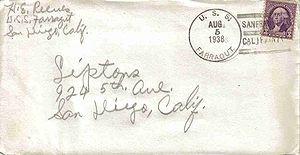 H.S. Reeves
U.S.S. Farragut
San Diego, Calif.
U. S. S.
AUG.
5
1938
FARRAGUT
CALIFORNIA
Liptons
924 5th Ave.
San Diego, Calif.